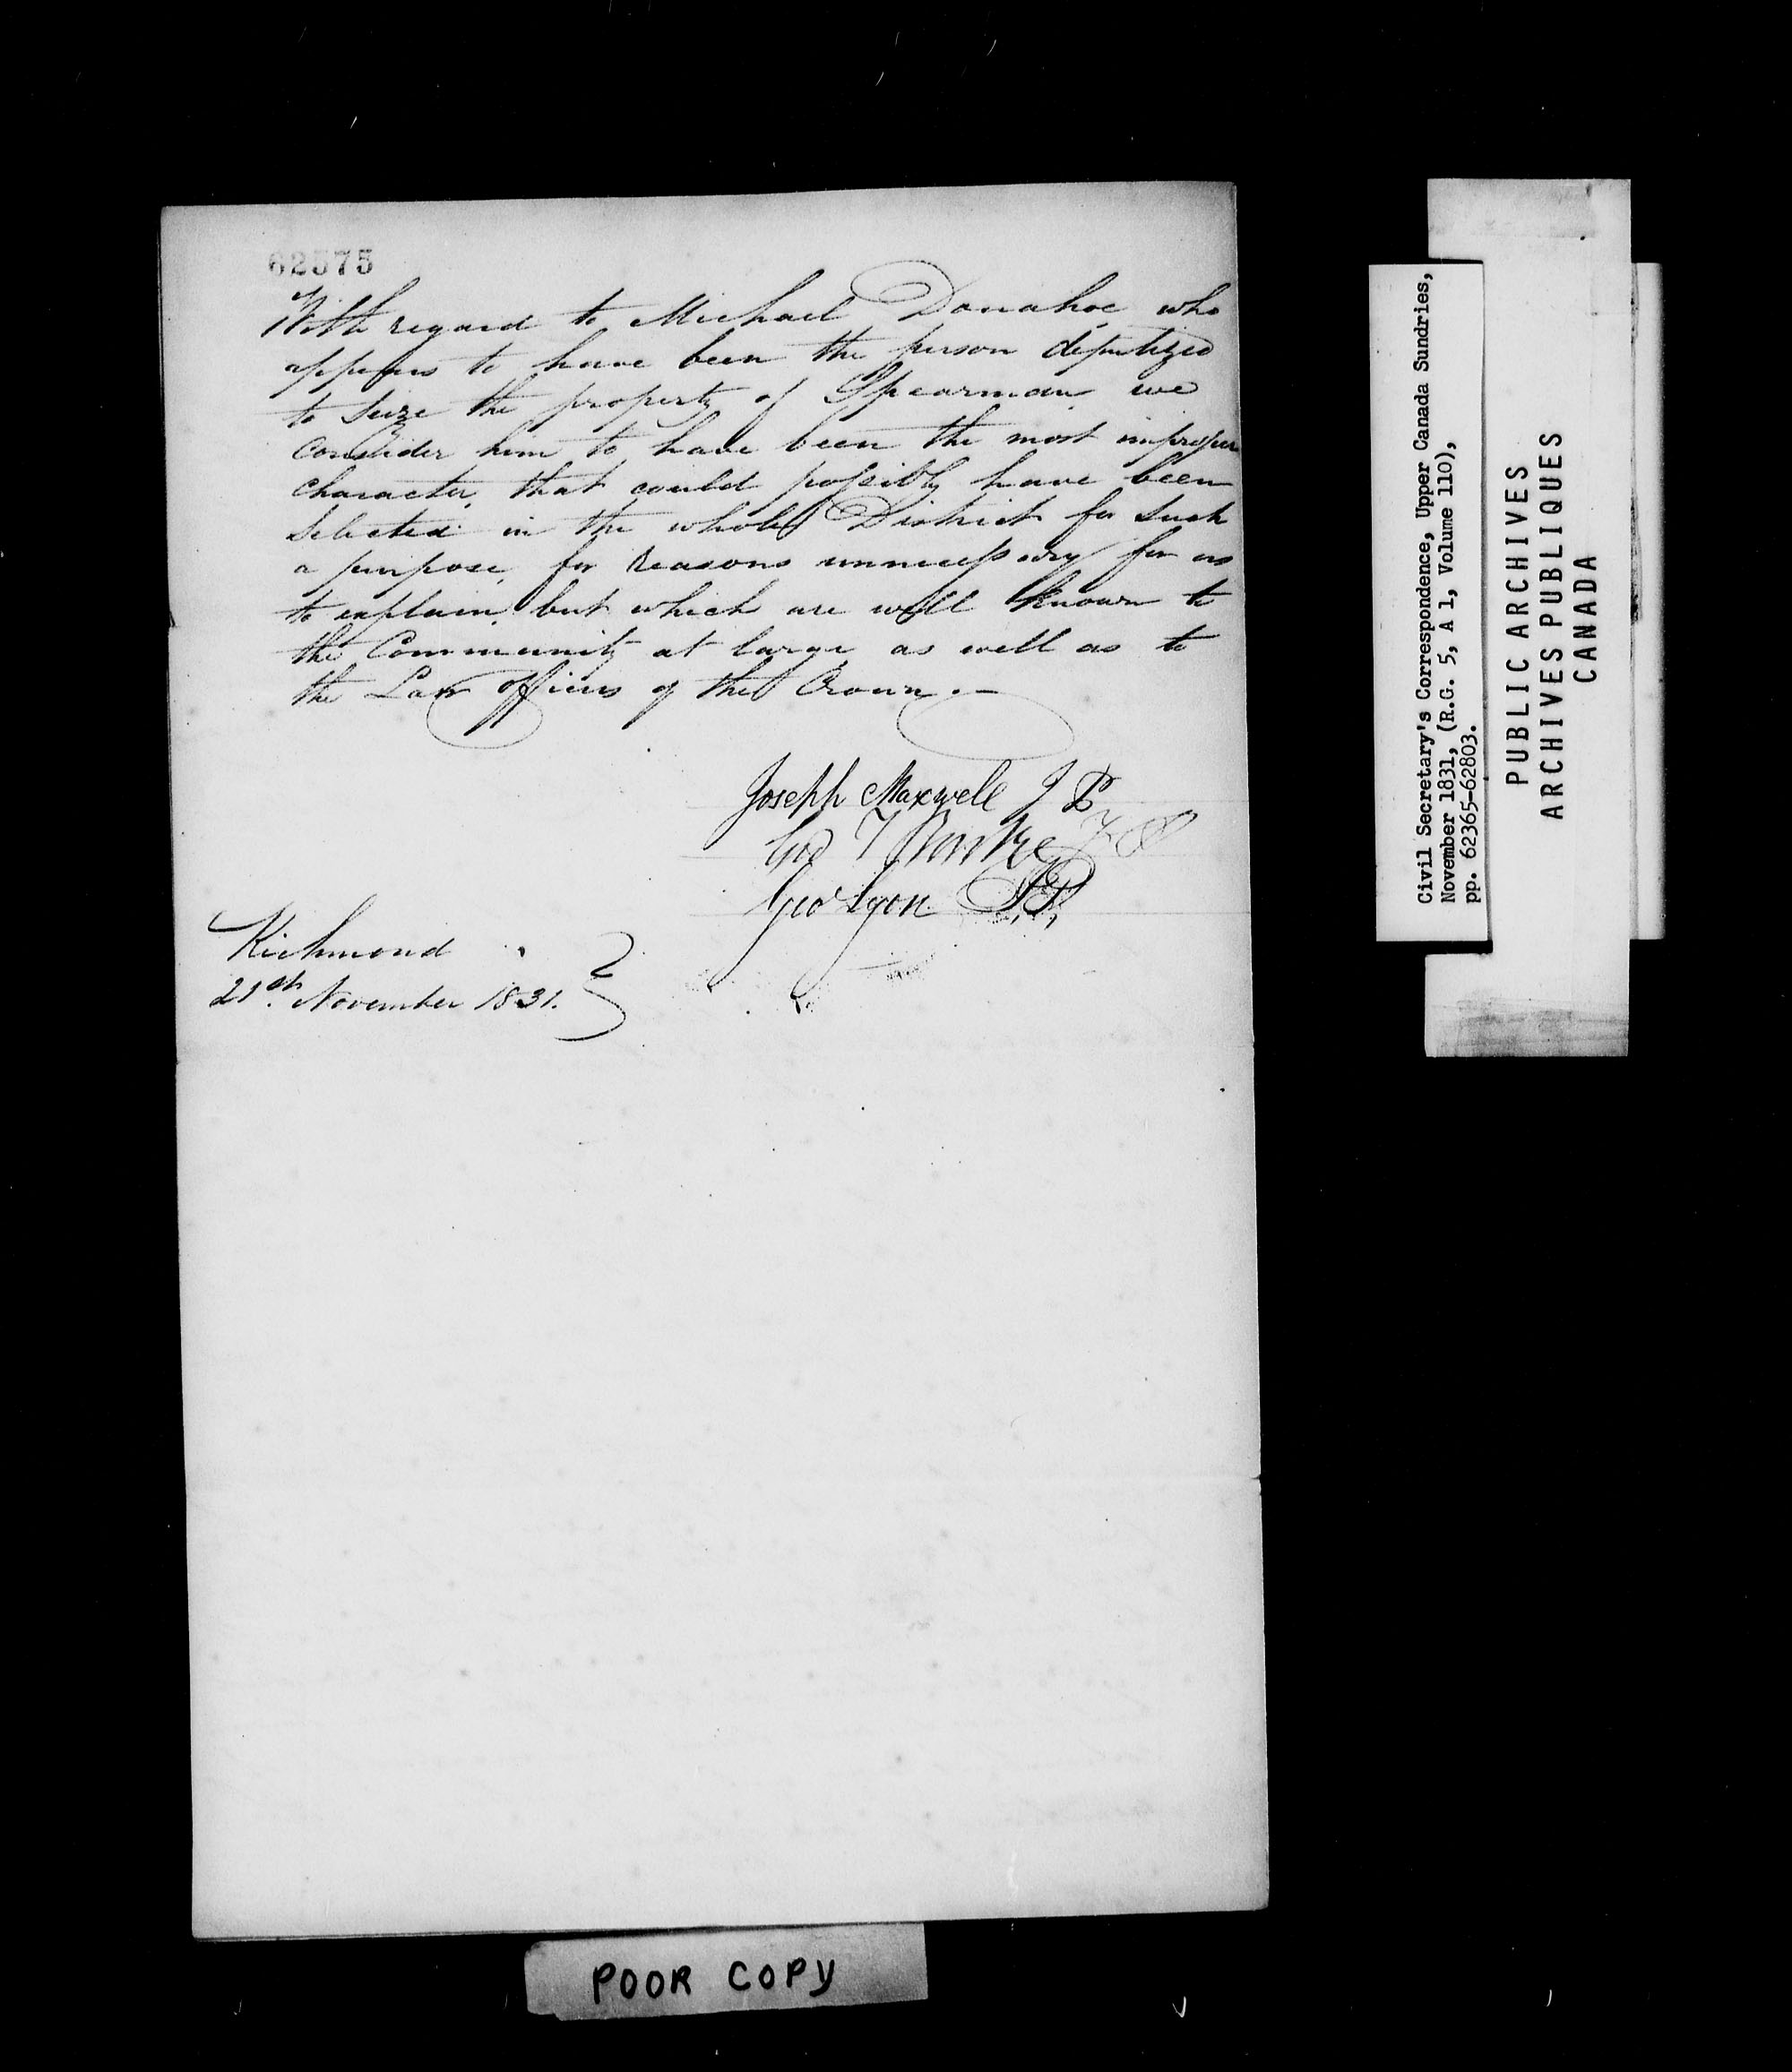 62575
With regard to Michael Donahoe who
appears to have been the person deputized
to seize the property of Spearman we
consider him to have been the most improper
character, that could possibly have been
selected in the whole District for such
a purpose, for reasons unnecessary for us
to explain, but which are well known to
the Community at large as well as to
the Law officers of the Crown.—
Joseph Maxwell J P
Geo T Burke J P
Geo Lyon J.P.
Richmond
21st November 1831.
POOR COPY
Civil Secretary's Correspondence, Upper Canada Sundries,
November 1831, (R.G. 5, A 1, Volume 110),
pp. 62365-62803.
PUBLIC ARCHIVES
ARCHIVES PUBLIQUES
CANADA